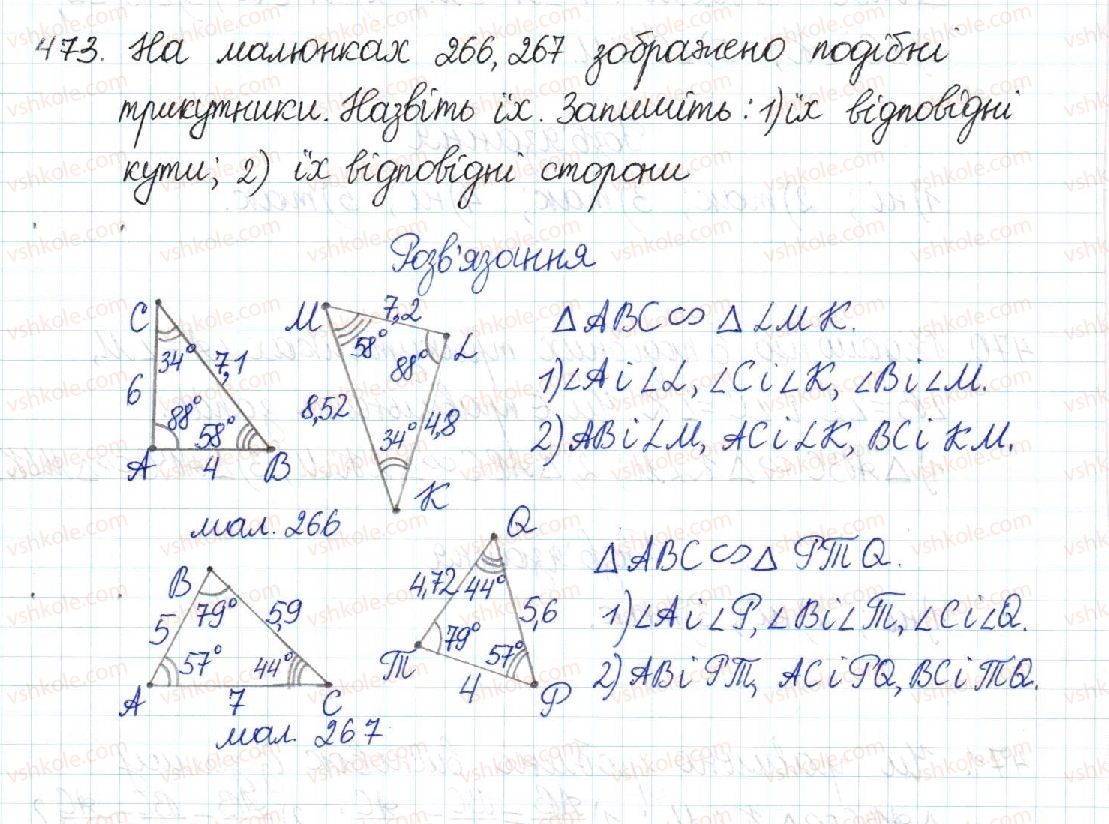 473. На малюнках 266, 267 зображено подібні
трикутники. Назвіть їх. Запишіть: 1) їх відповідні
кути; 2) їх відповідні сторони
Розв'язання
C
34°
7,1
6
88°
58°
A
4
B
мал. 266
M
7,2
58°
L
88°
8,52
34°
4,8
K
△ABC∽△LMK.
1) ∠A і ∠L, ∠C і ∠K, ∠B і ∠M.
2) AB і LM, AC і LK, BC і KM.
B
79°
5
5,9
57°
44°
A
7
C
мал. 267
Q
4,72
44°
5,6
79°
57°
T
4
P
△ABC∽△PTQ.
1) ∠A і ∠P, ∠B і ∠T, ∠C і ∠Q.
2) AB і PT, AC і PQ, BC і TQ.
vshkole.com